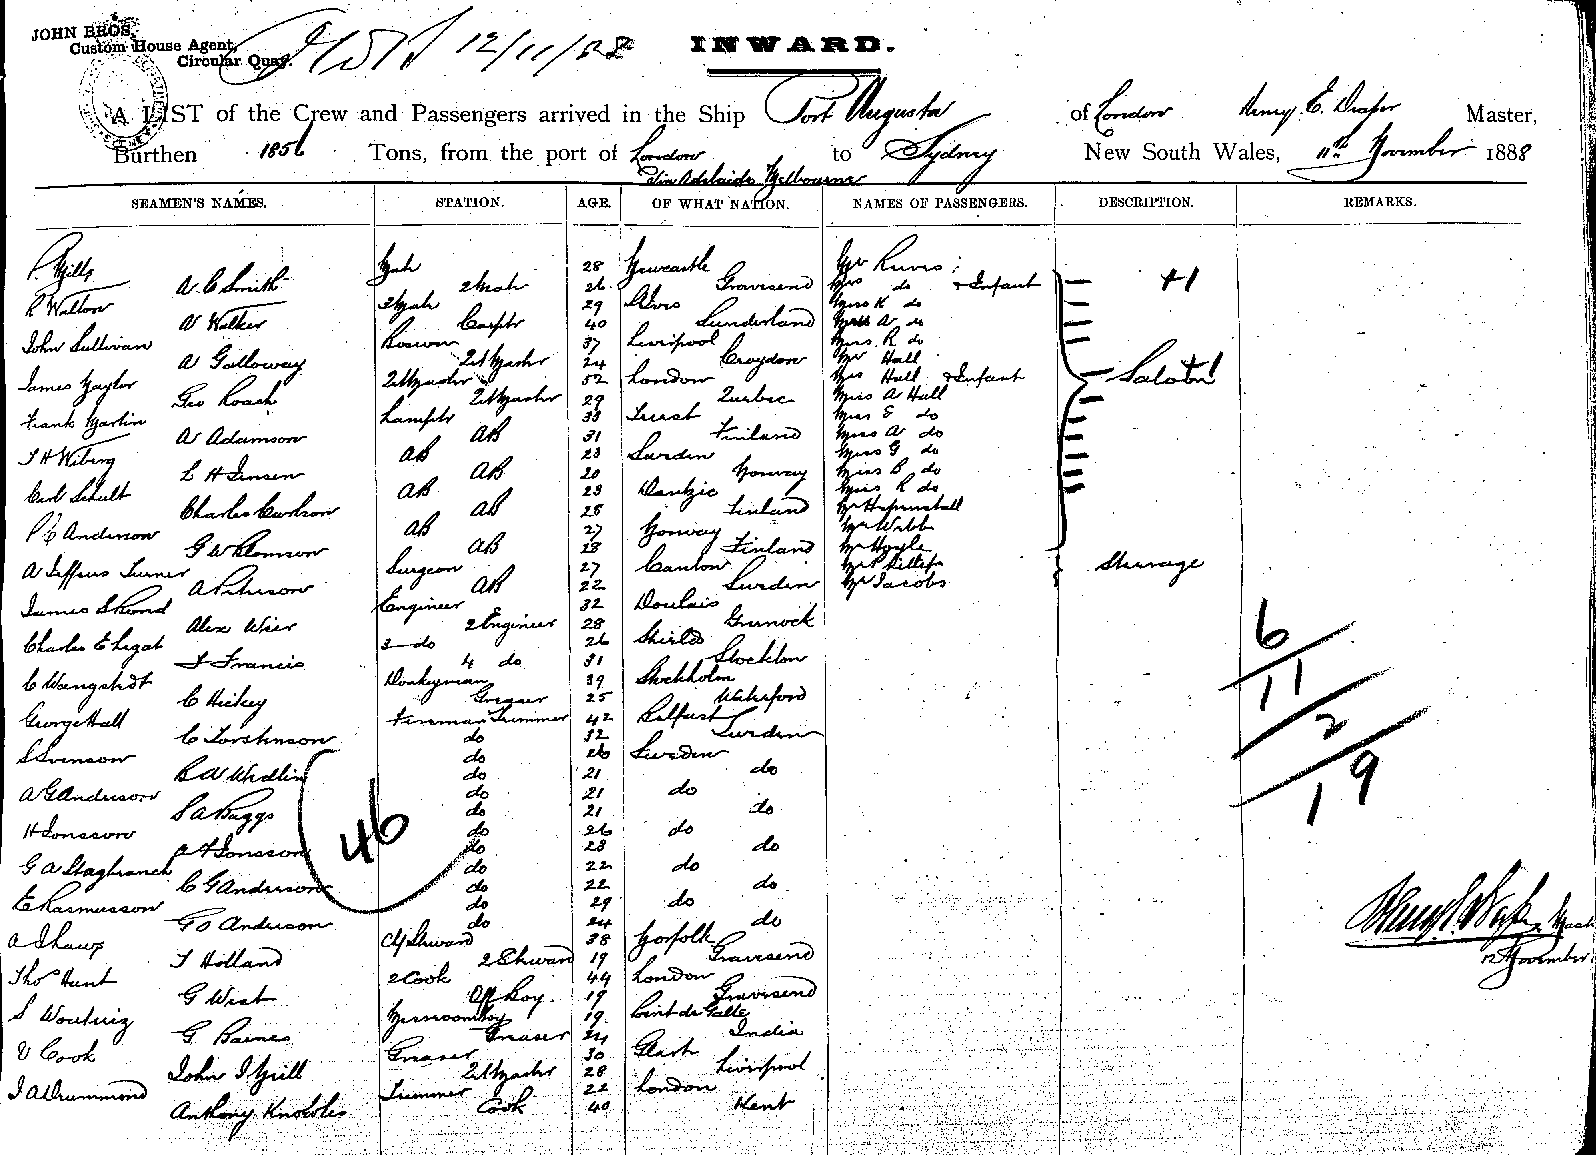 JOHN BROS.
Custom House Agent,
Circular Quay.
12/11/88
INWARD.
A LIST of the Crew and Passengers arrived in the Ship Port Augusta of London Henry E. Draper Master,
Burthen 1856 Tons, from the port of London to Sydney New South Wales, 11th November 1888
Via Adelaide Melbourne
SEAMEN'S NAMES. STATION. AGE. OF WHAT NATION. NAMES OF PASSENGERS. DESCRIPTION. REMARKS.
P. Mills Mate 28 Newcastle Mr Reeves
A. C Smith 2 Mate 26 Gravesend Mrs do & Infant
R Walton 3 Mate 29 Miss K do
W Walker Carptr 40 Sunderland Miss A do
John Sullivan Boswn 37 Liverpool Miss R do
A Galloway 2t Master 24 Croydon Mr Hall
James Naylor 2t Master 52 London Mrs Hall & Infant
Geo Roach 2t Master 29 Quebec Miss A Hall
Frank Martin Lamptr 33 Triest Miss E do
A Adamson AB 31 Finland Miss A do
AB 23 Sweden Miss G do
L H Jensen AB 20 Norway Miss B do
Carl Schult AB 23 Dantzic Miss R do
Charles Carlson AB 25 Finland Mr Heppenstall
P C Anderson AB 27 Norway Mr Webb
G W Blomson AB 28 Finland Mr Hoyle
A Jeffreys Turner Surgeon 27 Canton
A Peterson AB 22 Sweden Mr Jacobs
Saloon
Steerage
James Engineer 32 Doulais
Alex Wier 2 Engineer 28 Greenock
Charles E Legat 3 do 26 Shields
J Francis 4 do 31 Stockton
C Wangstedt Donkeyman 39 Stockholm
C Hickey Greaser 25 Waterford
George Hall Fireman Trimmer 42 Belfast
C Torstenson do 32 Sweden
S Svenson do 26 Sweden
do 21 do
A G Anderson do 21 do
S A Baggs do 21 do
H Jonsson do 26 do
A F Jonsson do 23 do
G A do 22 do
C G Anderson do 22 do
E Rasmusson do 29 do
G O Anderson do 24 do
A Shaw Chf Steward 38 Norfolk
J Holland 2 Steward 19 Gravesend
Thos Hunt 2 Cook 44 London
G West Off Boy. 19 Gravesend
S Messroomboy 19 Point de Galle
G. Barnes Greaser 24 India
V Cook Greaser 30
John J Grill 2t Master 28 Liverpool
J A Drummond Trimmer 22 London
Anthony Knowles Cook 40 Kent
46
6
11
2
19
Mast
12 November